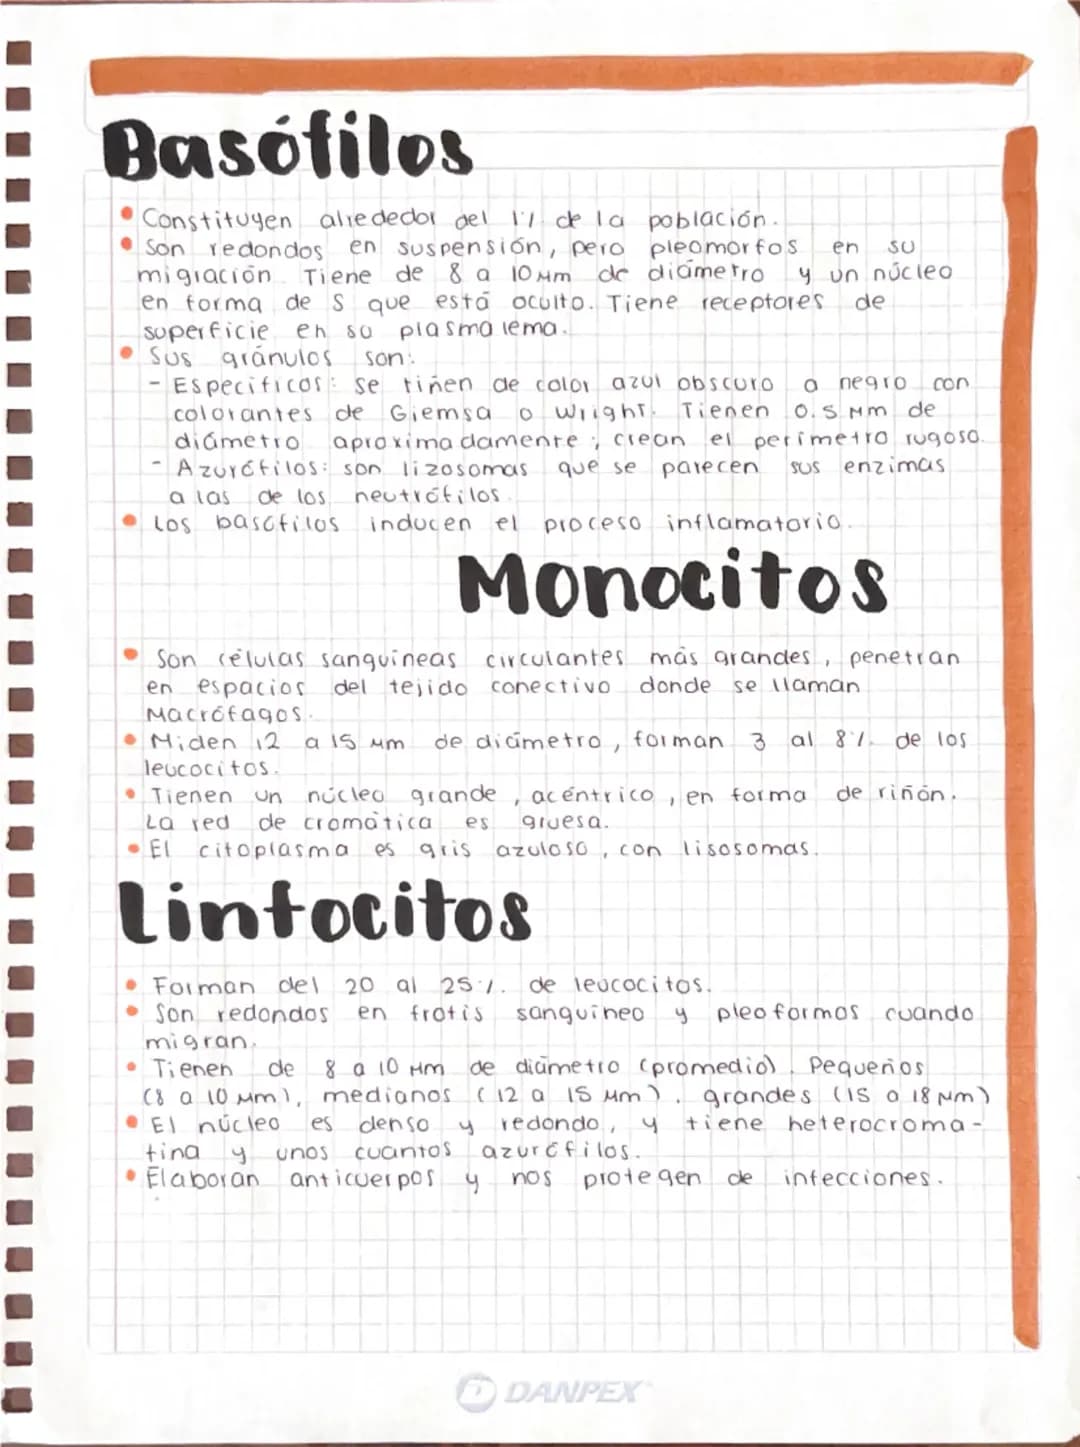 Basófilos
• Constituyen alrededor del 1% de la población.
• Son redondos en suspensión, pero pleomorfos en su
migración. Tiene de 8 a 10 μm de diámetro y un núcleo
en forma de S que está oculto. Tiene receptores de
superficie en su plasmalema.
• Sus gránulos son:
- Específicos: se tiñen de color azul obscuro a negro con
colorantes de Giemsa o Wright. Tienen 0.5 μm de
diámetro aproximadamente; crean el perímetro rugoso.
- Azurófilos: son lizosomas que se parecen sus enzimas
a las de los neutrófilos.
• Los basófilos inducen el proceso inflamatorio.
Monocitos
• Son células sanguíneas circulantes más grandes, penetran
en espacios del tejido conectivo donde se llaman
Macrófagos.
• Miden 12 a 15 μm de diámetro, forman 3 al 8% de los
leucocitos.
• Tienen un núcleo grande, acéntrico, en forma de riñón.
La red de cromática es gruesa.
• El citoplasma es gris azuloso, con lisosomas.
Linfocitos
• Forman del 20 al 25% de leucocitos.
• Son redondos en frotis sanguíneo y pleoformos cuando
migran.
• Tienen de 8 a 10 μm de diámetro (promedio). Pequeños
(8 a 10 μm), medianos (12 a 15 μm), grandes (15 a 18 μm)
• El núcleo es denso y redondo, y tiene heterocroma-
tina y unos cuantos azurófilos.
• Elaboran anticuerpos y nos protegen de infecciones.
DANPEX